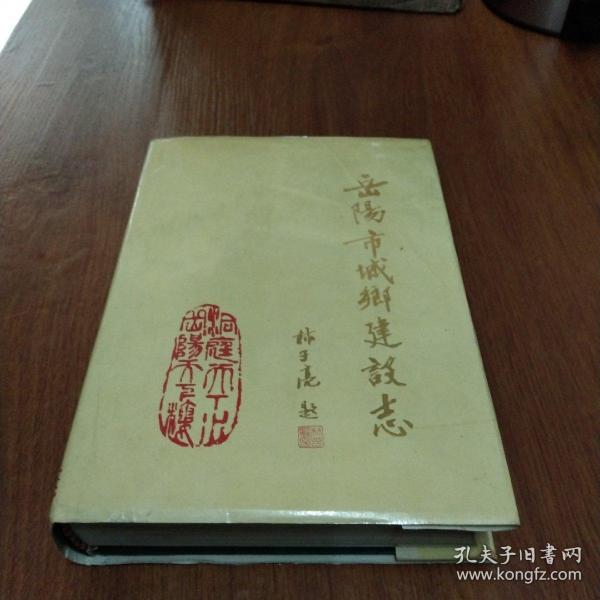 岳陽市城鄉建設志
題
洞庭天下水
岳陽天下樓
孔夫子旧书网
www.kongfz.com